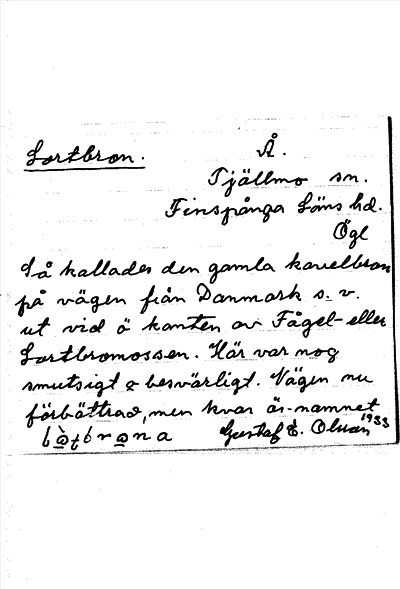 Lortbron.
Å.
Tjällmo sn.
Finspånga Läns hd.
Ögl
Så kallades den gamla kavelbron
på vägen från Danmark s. v.
ut vid ö kanten av Fågel- eller
Lortbromossen. Här var nog
smutsigt & besvärligt. Vägen nu
förbättrad, men kvar är namnet
Gustaf E. Olsson 1933